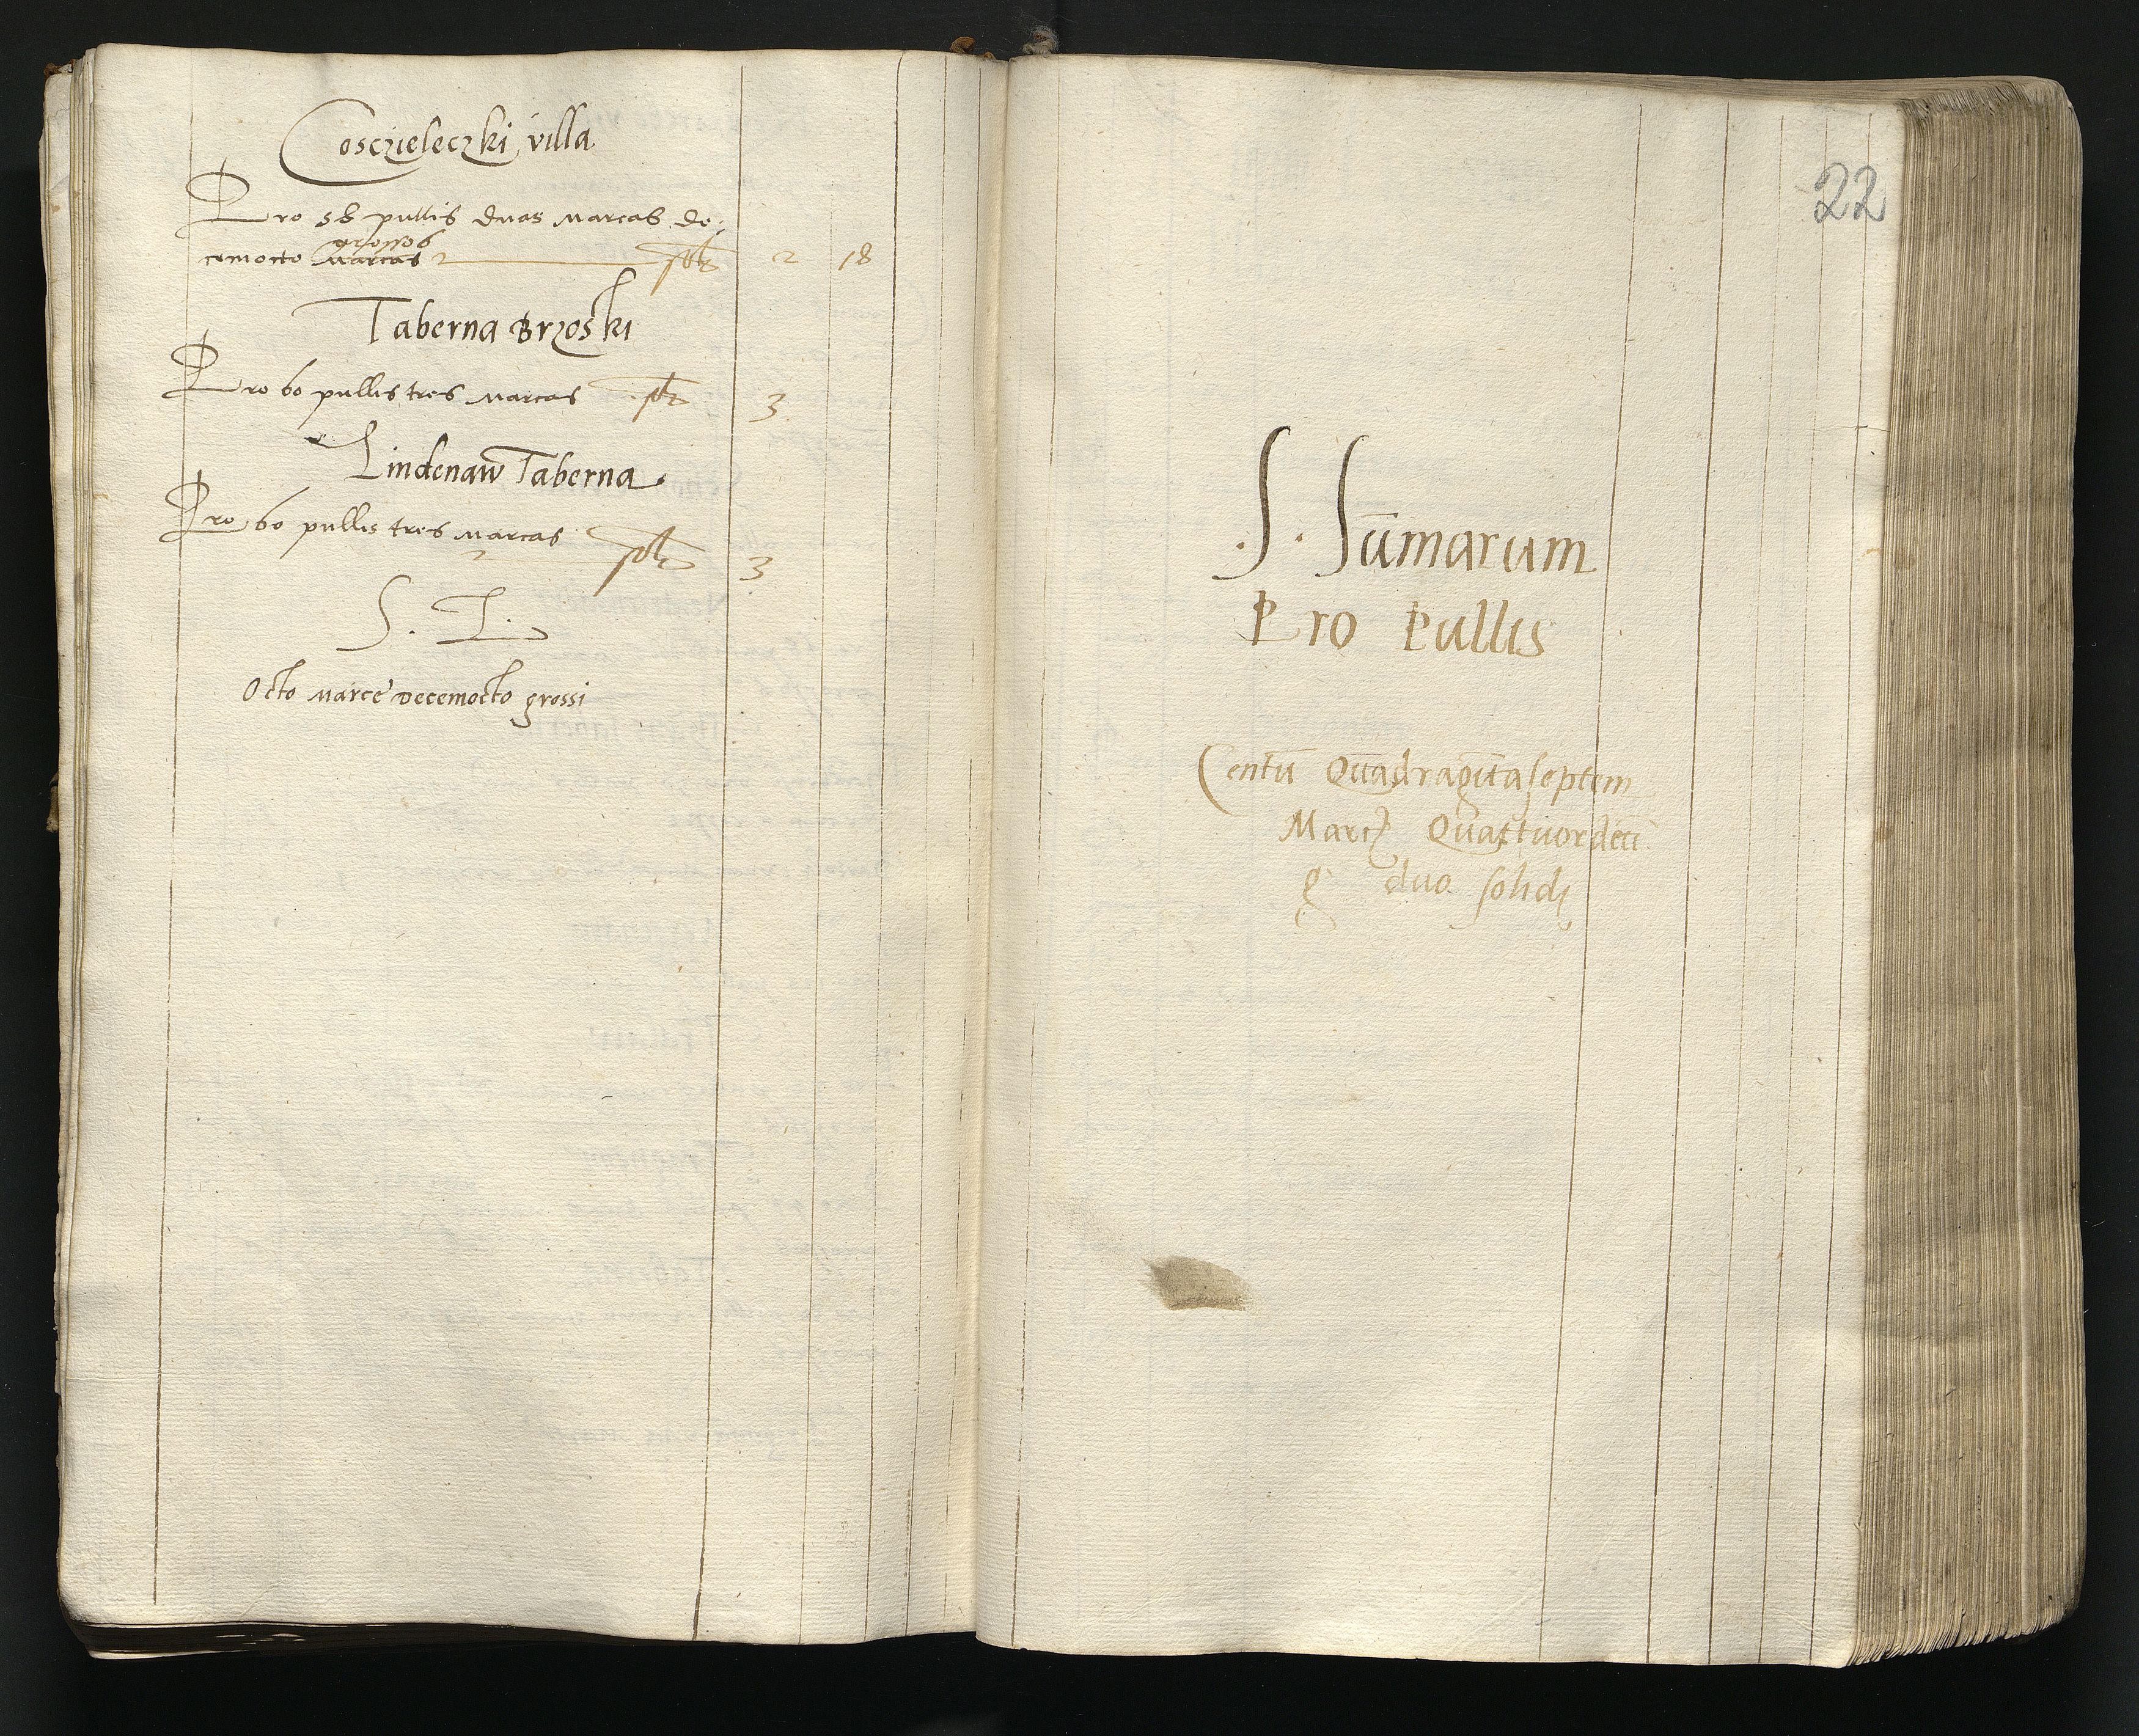 Cosczieleczki villa
Pro 58 pullis duas marcas de,
grossos
cemocto marcas 2 18
Taberna Brzoski
Pro 60 pullis tres marcas 3
Lindenaw Taberna
Pro 60 pullis tres marcas
3
S. L.
Octo marce decemocto grossi
22
.S. Sūmarum
Pro Pullis
Centū Quadragītaseptem
Marc Quattuordeci
g duo solidi